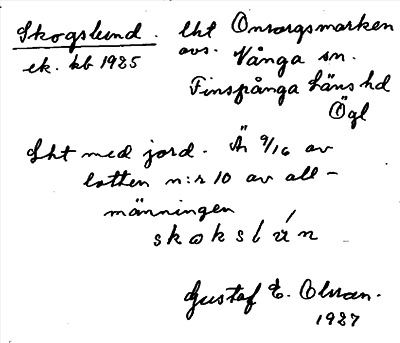 Skogslund. lht Onsorgsmarken
ek. kb 1925 avs. Vånga sn.
Finspånga läns hd
Ögl
Lht med jord. Är 9/16 av
lotten n:r 10 av all-
männingen
skokslún
Gustaf E. Olsson.
1927